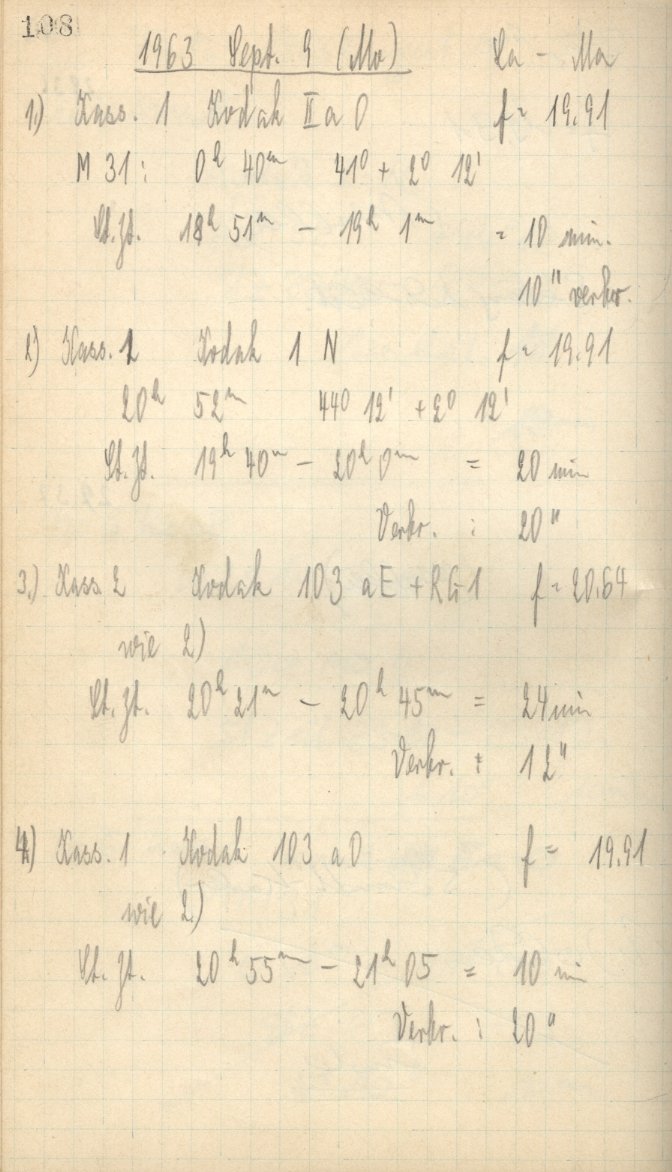 108
1963 Sept. 9 (Mo) La - Ma
1.) Kass. 1 Kodak II a O f = 19.91
M 31 : 0h 40m 41° + 2° 12'
St.Zt. 18h 51m - 19h 1m = 10 min.
10" verkr.
2) Kass. 1 Kodak 1 N f = 19.91
20h 52m 44° 12' + 2° 12'
St.Zt. 19h 40m - 20h 0m = 20 min
Verkr. : 20"
3.) Kass 2 Kodak 103 aE + RG1 f = 20.64
wie 2.)
St.Zt. 20h 21m - 20h 45m = 24 min
Verkr. : 12"
4.) Kass. 1 Kodak 103 aO f = 19.91
wie 2.)
St.Zt. 20h 55m - 21h 05 = 10 min
Verkr. : 20"